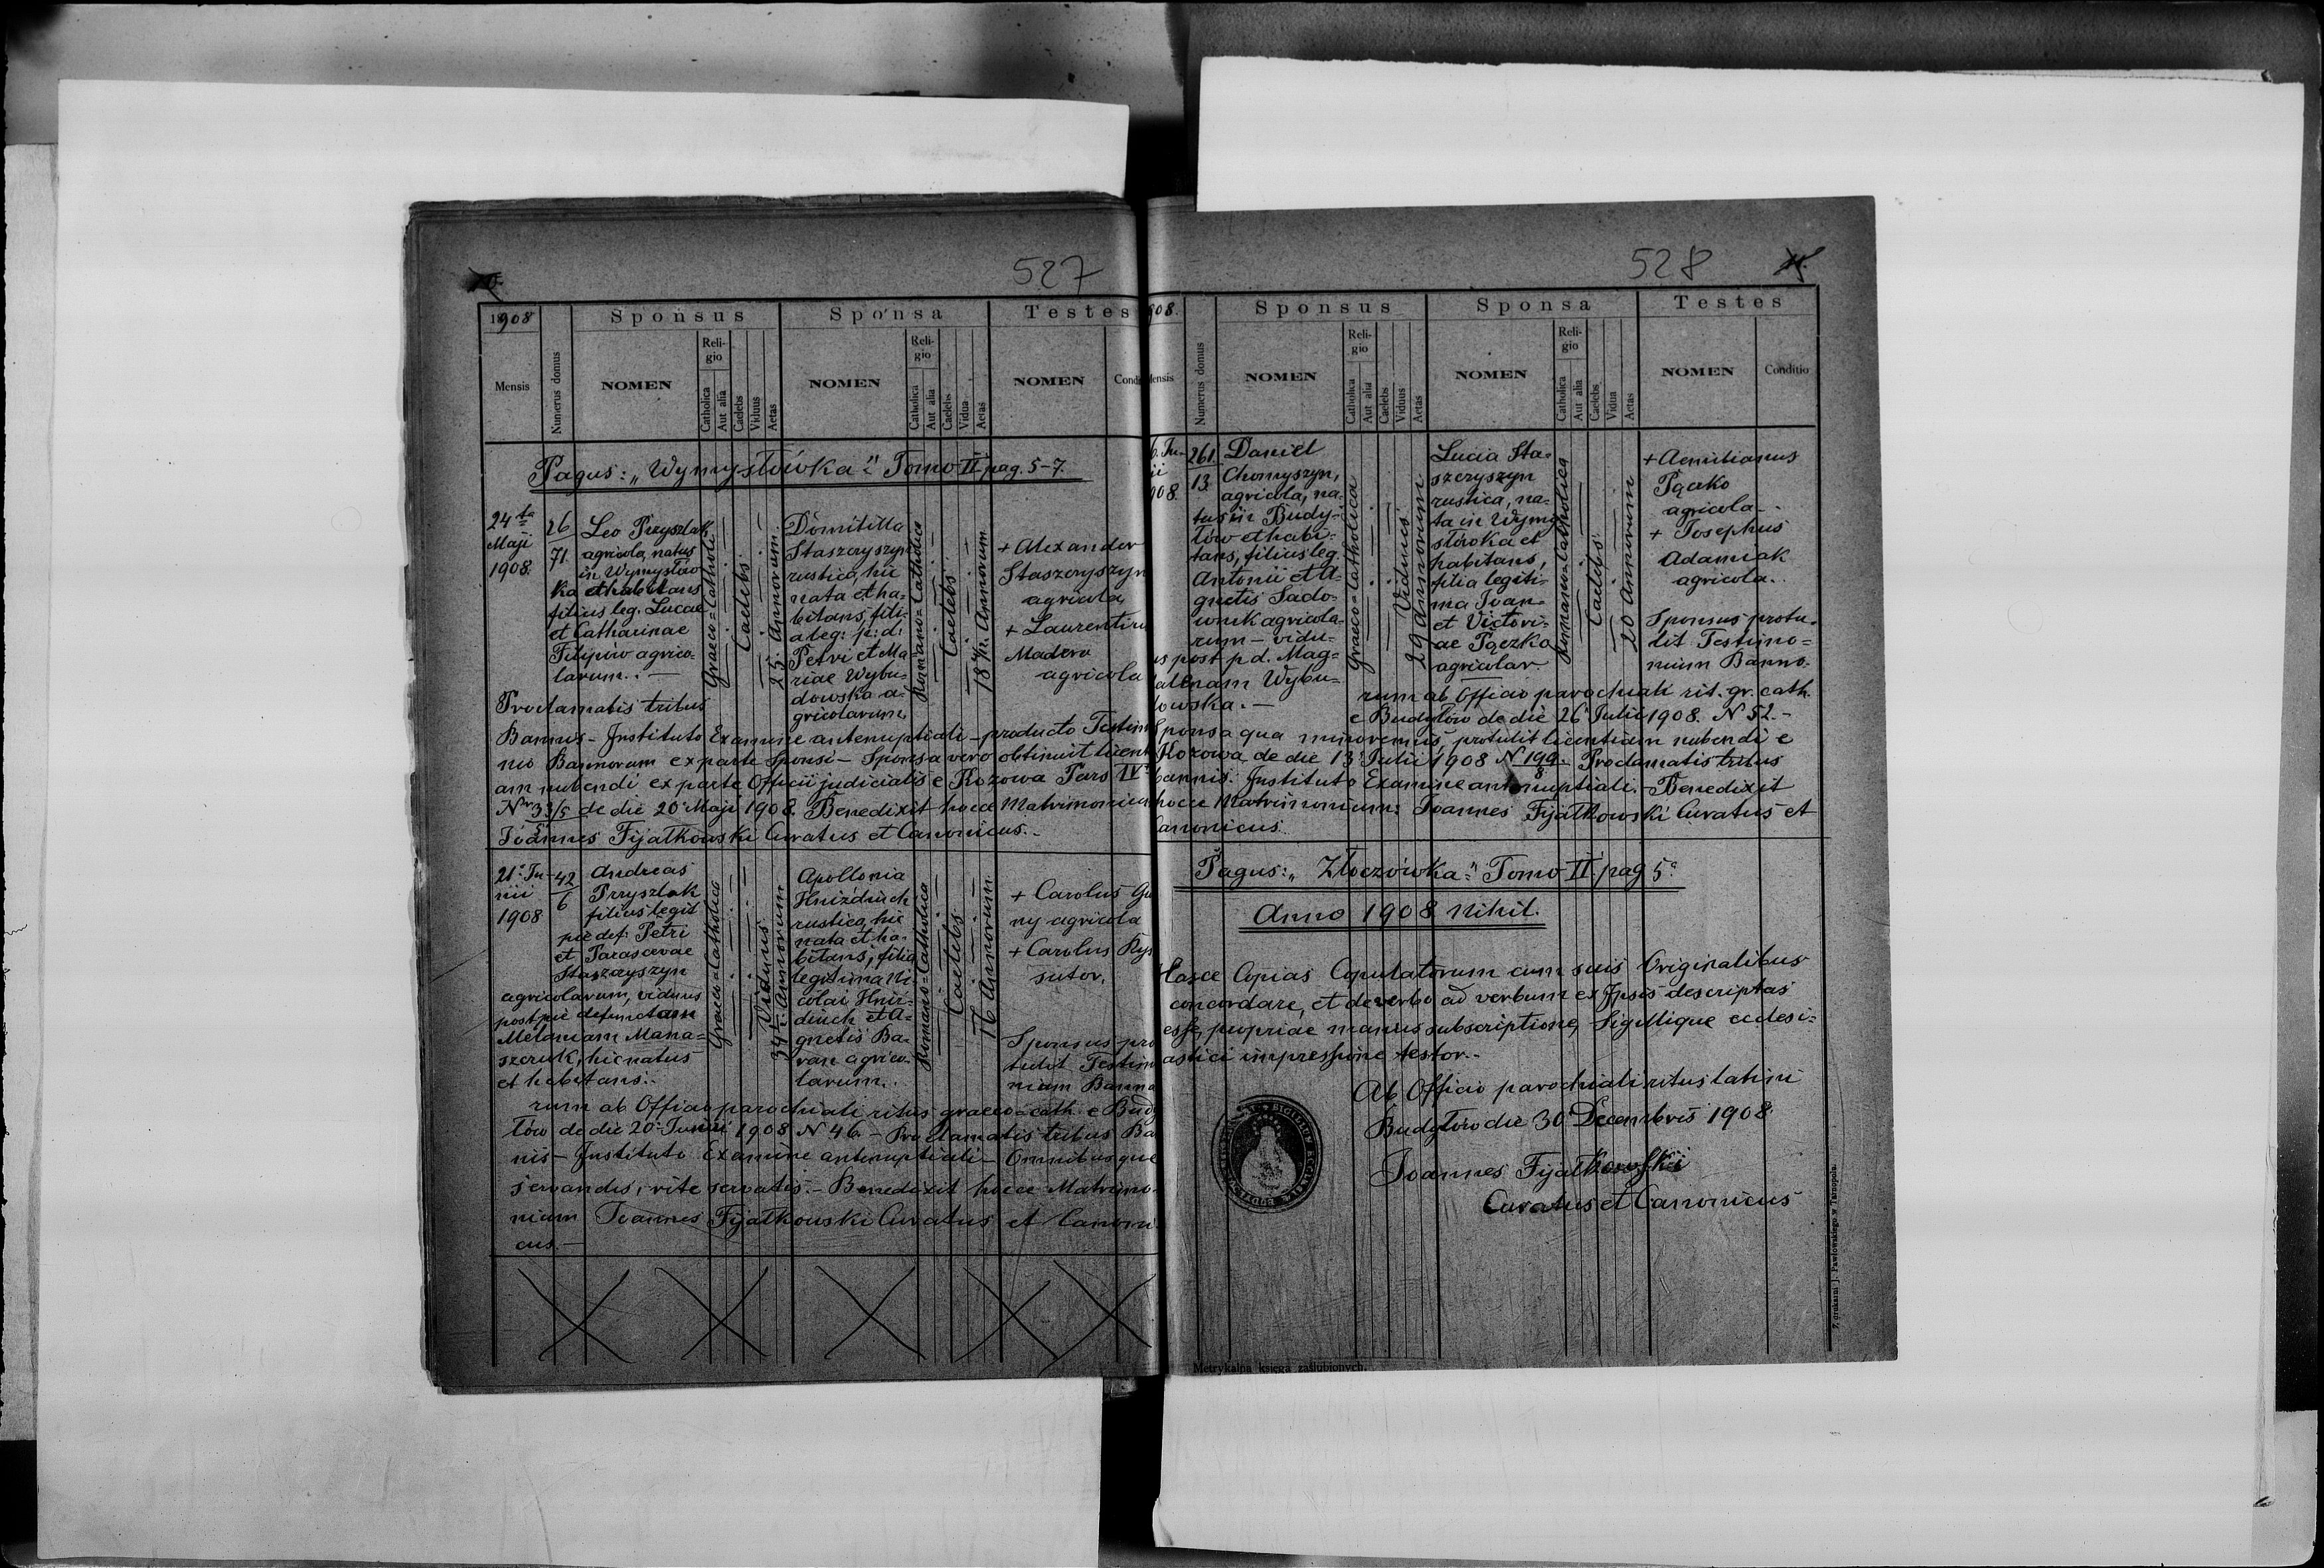 527
1908
Sponsus
Sponsa
Testes
Mensis
Numerus domus
NOMEN
Reli-
gio
Catholica
Aut alia
Caelebs
Viduus
Aetas
NOMEN
Reli-
gio
Catholica
Aut alia
Caelebs
Vidua
Aetas
NOMEN
Pagus: „Wymysłówka" Tomo II pag. 5-7.
24ta
Maji
1908.
26
71
Leo Przyszlak
agricola, natus
in Wymysłów
ka et habitans
filius leg. Lucae
et Catharinae
Filipów agrico-
larum. . —
Graeco-Catholica
Caelebs
25. Annorum
Domitilla
Staszczyszyn
rustica, hic
nata et ha-
bitans, fili-
a leg: p: d:
Petri et Ma
riae Wybu-
dowska a-
gricolarum.
Romano-Catholica
Caelebs
18 Annorum
+ Alexander
Staszczyszyn
agricola
+ Laurentiu
Madera
agricola
Proclamatis tribus
Bannis - Instituto Examine antenuptiali - producto Testim
nio Bannorum ex parte Sponsi - Sponsa vero obtinuit licent
am nubendi ex parte Officii judicialis e Kozowa Pars IV
Nr 33/5 de die 20 Maji 1908. Benedixit hocce Matrimonium
5
Joannes Fijałkowski Curatus et Canonicus. -
21. Ju-
nii
1908
42
6
Andreas
Przyszlak
filius legit
pie def. Petri
et Parascevae
Staszczyszyn
agricolarum, viduus
post pie defunctam
Melaniam Mana-
szczuk, hic natus
et habitans. .
Graeco-Catholica
Viduus
34 Annorum
Apollonia
Hnizdiuch
rustica, hic
nata et ha-
bitans, filia
legitima Ni
colai Hniz-
diuch et A-
gnetis Ba-
ran agrico-
larum. .
Romano-Catholica
Caelebs
16 Annorum
+ Carolus Gu
ny agricola
+ Carolus Rys
sutor.
Sponsus pro
tulit Testim
nium Banno
rum ab Officio parochiali ritus graeco-cath. e Budy
łów de die 20. Junii 1908 N 46. - Proclamatis tribus Ba
nis - Instituto Examine antenuptiali - Omnibusque
servandis, rite servatis. - Benedixit hocce Matrimo-
nium Joannes Fijałkowski Curatus et Canoni
cus. —
528
908.
Sponsus
Sponsa
Testes
ensis
Numerus domus
NOMEN
Reli-
gio
Catholica
Aut alia
Caelebs
Viduus
Aetas
NOMEN
Reli-
gio
Catholica
Aut alia
Caelebs
Vidua
Aetas
NOMEN
Conditio
6. Ju-
ii
908.
261.
13
Daniel
Chomyszyn,
agricola, na-
tus in Budy-
łów et habi-
tans, filius leg.
Antonii et A-
gnetis Sado-
wnik agricola-
rum - vidu-
us post p. d. Mag-
dalenam Wybu-
dowska. —
Graeco-Catholica
Viduus
29 Annorum
Lucia Sta-
szczyszyn
rustica, na-
ta in Wymy
słówka et
habitans,
filia legiti-
ma Joan-
et Victori-
ae Pączka
agricolar
Romano-Catholica
Caelebs
20 Annorum
+ Aemilianus
Pączko
agricola. .
+ Josephus
Adamiak
agricola. .
Sponsus protu-
lit Testimo-
nium Banno-
rum ab Officio parochiali rit. gr. cath.
e Budyłów de die 26 Julii 1908. N 52. -
Sponsa qua minorennis, protulit licentiam nubendi e
Kozowa de die 13 Julii 1908 N 199. Proclamatis tribus
8
bannis. Instituto Examine antenuptiali. - Benedixit
hocce Matrimonium: Joannes Fijałkowski Curatus et
Canonicus.
Pagus: „Złoczówka" Tomo II pag 5.
Anno 1908 Nihil.
Hasce Copias Copulatorum cum suis Originalibus
concordare, et de verbo ad verbum ex Ipsis descriptas
esse, propriae manus subscriptione, Sigillique ecclesi-
astici impressione testor. -
Ab Officio parochiali ritus latini
Budyłów die 30 Decembris 1908.
Joannes Fijałkowski
Curatus et Canonicus
Metrykalna księga zaślubionych.
Z drukarni J. Pawłowskiego w Tarnopolu.